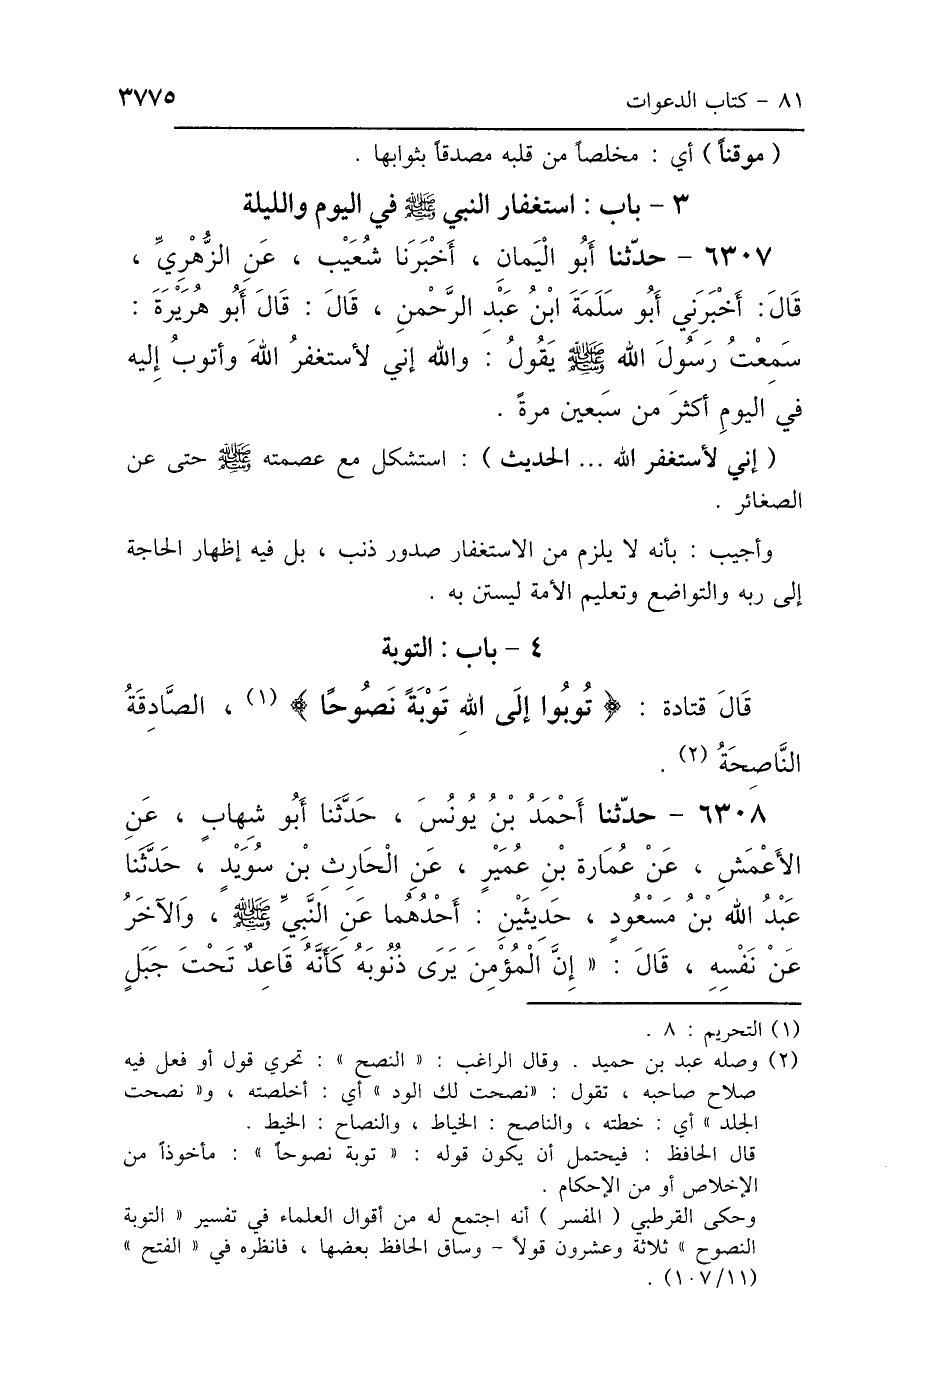 ٨١ - كتاب الدعوات ٣٧٧٥
( موقناً ) أي : مخلصاً من قلبه مصدقاً بثوابها .
٣ - باب : استغفار النبي ﷺ في اليوم والليلة
٦٣٠٧ - حدّثنا أَبُو الْيَمانِ ، أَخْبَرَنا شُعَيْب ، عَنِ الزُّهْرِيِّ ،
قَالَ : أَخْبَرَنِي أَبُو سَلَمَةَ ابْنُ عَبْدِ الرَّحْمنِ ، قَالَ : قَالَ أَبُو هُرَيْرَةَ :
سَمِعْتُ رَسُولَ الله ﷺ يَقُولُ : والله إني لأستغفرُ اللهَ وأتوبُ إليه
في اليومِ أكثرَ من سَبعين مرةً .
( إني لأستغفر الله ... الحديث ) : استشكل مع عصمته ﷺ حتى عن
الصغائر .
وأجيب : بأنه لا يلزم من الاستغفار صدور ذنب ، بل فيه إظهار الحاجة
إلى ربه والتواضع وتعليم الأمة ليستن به .
٤ - باب : التوبة
قَالَ قتادة : ﴿ تُوبُوا إلَى اللهِ تَوْبَةً نَصُوحًا ﴾ (١) ، الصَّادِقَةُ
النَّاصِحَةُ (٢) .
٦٣٠٨ - حدّثنا أَحْمَدُ بْنُ يُونُسَ ، حَدَّثَنا أَبُو شِهابٍ ، عَنِ
الأَعْمَشِ ، عَنْ عُمَارة بْنِ عُمَيْرٍ ، عَنِ الْحَارِثِ بْنِ سُوَيْدٍ ، حَدَّثَنا
عَبْدُ الله بْنُ مَسْعُودٍ ، حَدِيثَيْنِ : أَحَدُهُما عَنِ النَّبِيِّ ﷺ ، وَالآخَرُ
عَنْ نَفْسِهِ ، قَالَ : « إِنَّ الْمُؤْمِنَ يَرَى ذُنُوبَهُ كَأَنَّهُ قَاعِدٌ تَحْتَ جَبَلٍ
(١) التحريم : ٨ .
(٢) وصله عبد بن حميد . وقال الراغب : « النصح » : تحري قول أو فعل فيه
صلاح صاحبه ، تقول : «نصحت لك الود » أي : أخلصته ، و« نصحت
الجلد » أي : خطته ، والناصح : الخياط ، والنصاح : الخيط .
قال الحافظ : فيحتمل أن يكون قوله : « توبة نصوحاً » : مأخوذاً من
الإخلاص أو من الإحكام .
وحكى القرطبي ( المفسر ) أنه اجتمع له من أقوال العلماء في تفسير « التوبة
النصوح » ثلاثة وعشرون قولاً - وساق الحافظ بعضها ، فانظره في « الفتح »
(١٠٧/١١) .